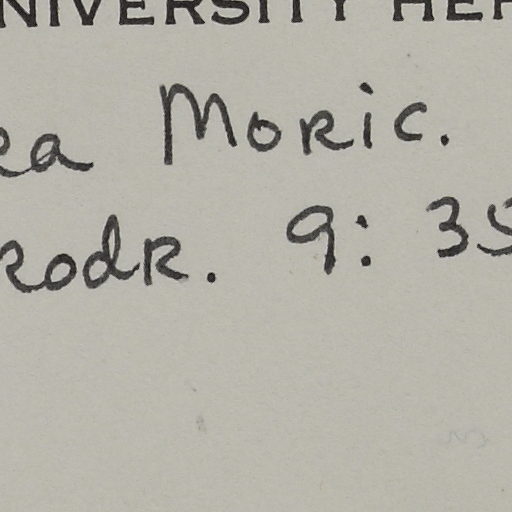 NIVERSITY HER
ea Moric.
Rodr. 9: 35